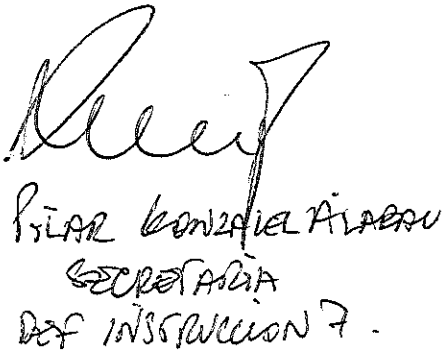 PILAR GONZALEZ ALABAU
SECRETARIA
DEF INSTRUCCION 7.